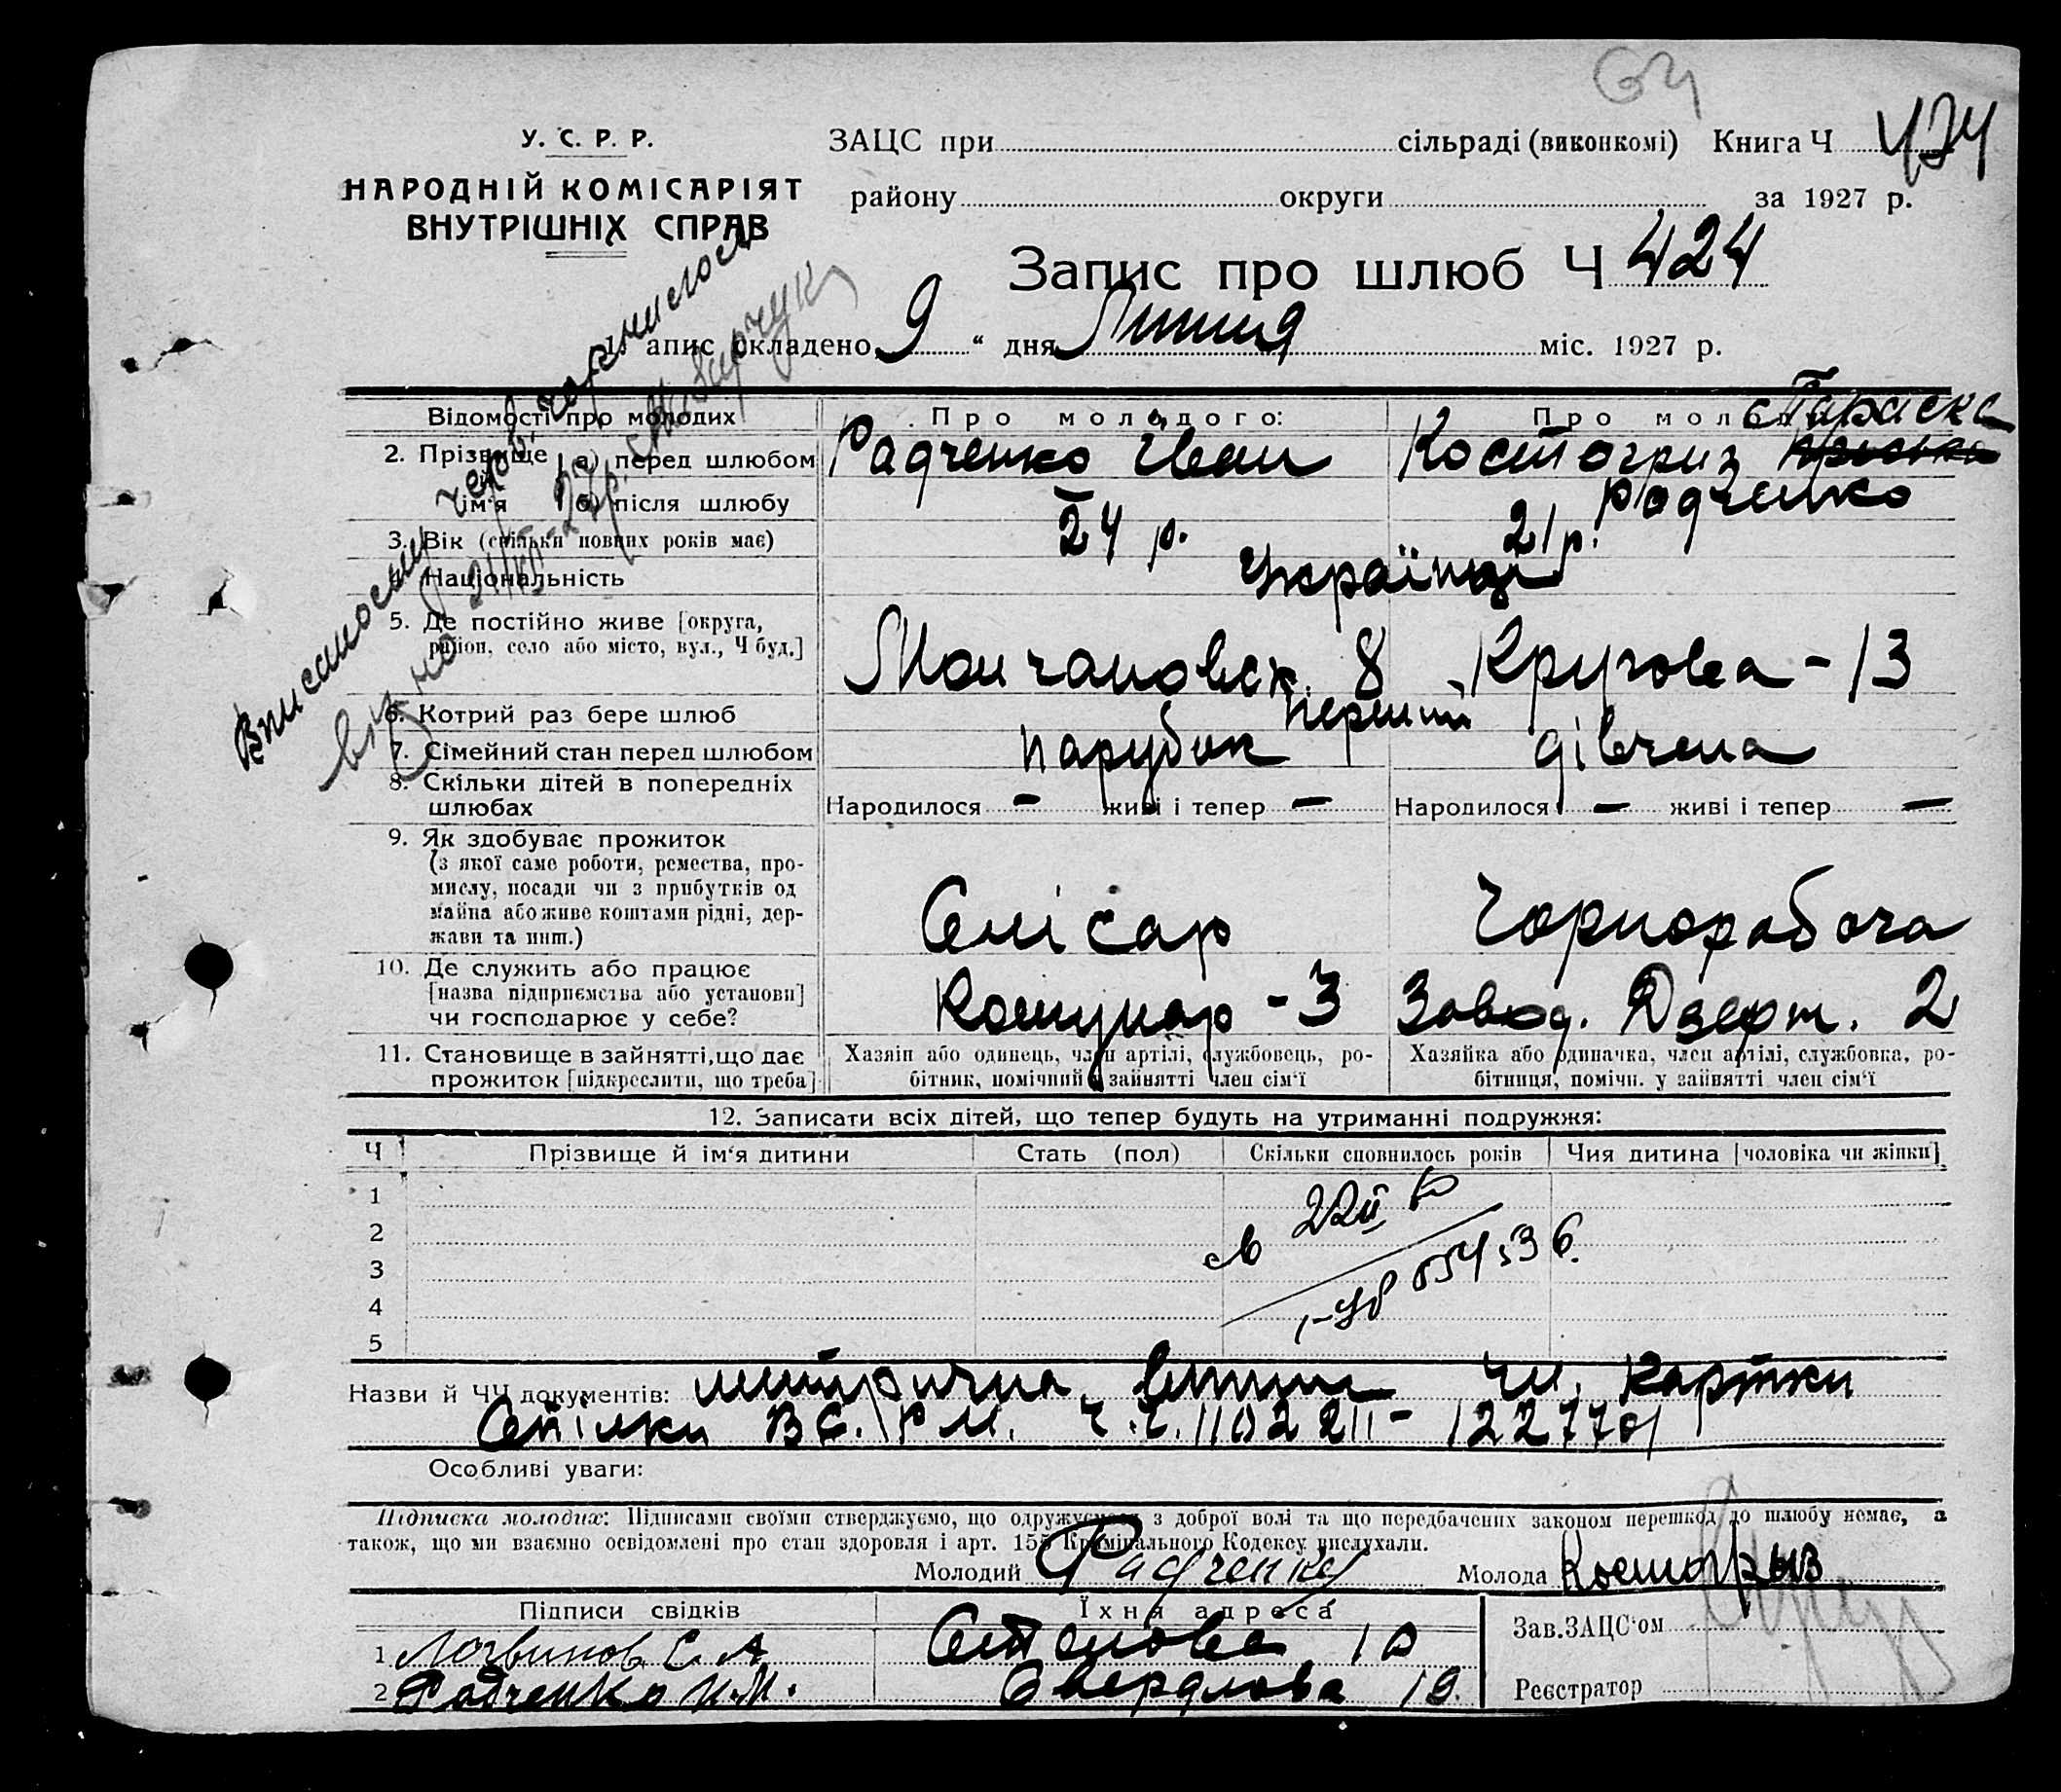 У. С. Р. Р.
НАРОДНІЙ КОМІСАРІЯТ
ВНУТРІШНІХ СПРАВ
ЗАЦС при сільраді (виконкомі) Книга Ч
району округи за 1927 р.
Запис про шлюб Ч 424
апис складено 9 “ дня Липня міс. 1927 р.
Відомості про молодих
Про молодого:
2. Прізвище й ім'я
а) перед шлюбом
Радченко Іван
Костогриз Параска
б) після шлюбу
Радченко
3. Вік (скільки повних років має)
24 р.
21 р.
4. Національність
Українці
5. Де постійно живе [округа,
район, село або місто, вул., Ч буд.]
8
Кругова - 13
6. Котрий раз бере шлюб
перший
7. Сімейний стан перед шлюбом
парубок
дівчена
8. Скільки дітей в попередніх
шлюбах
Народилося — живі і тепер —
Народилося — живі і тепер —
9. Як здобуває прожиток
(з якої саме роботи, ремества, про-
мислу, посади чи з прибутків од
майна або живе коштами рідні, дер-
жави та инш.)
Слісар
Чорноробоча
10. Де служить або працює
[назва підприємства або установи]
чи господарює у себе?
Комунар - 3
Завод. Дзерж. 2
11. Становище в зайнятті, що дає
прожиток [підкреслити, що треба]
Хазяїн або одинець, член артілі, службовець, ро-
бітник, помічний у зайнятті член сім'ї
Хазяйка або одиначка, член артілі, службовка, ро-
бітниця, помічн. у зайнятті член сім'ї
12. Записати всіх дітей, що тепер будуть на утриманні подружжя:
Ч Прізвище й ім'я дитини Стать (пол) Скільки сповнилось років Чия дитина [чоловіка чи жінки]
1
2
3
4
5
Назви й ЧЧ документів: метрична, витяг чл. картки
Спілки ВС. Р М. ч.ч.
Особливі уваги:
Підписка молодих: Підписами своїми стверджуємо, що одружуємося з доброї волі та що передбачених законом перешкод до шлюбу немає, а
також, що ми взаємно освідомлені про стан здоровля і арт. 155 Кримінального Кодексу вислухали.
Молодий Радченко Молода Костогрыз
Підписи свідків Їхня адреса
1 Логвинов С. А
Степова 10
2 Радченко И.М.
Свердлова 19.
Зав. ЗАЦС'ом
Реєстратор